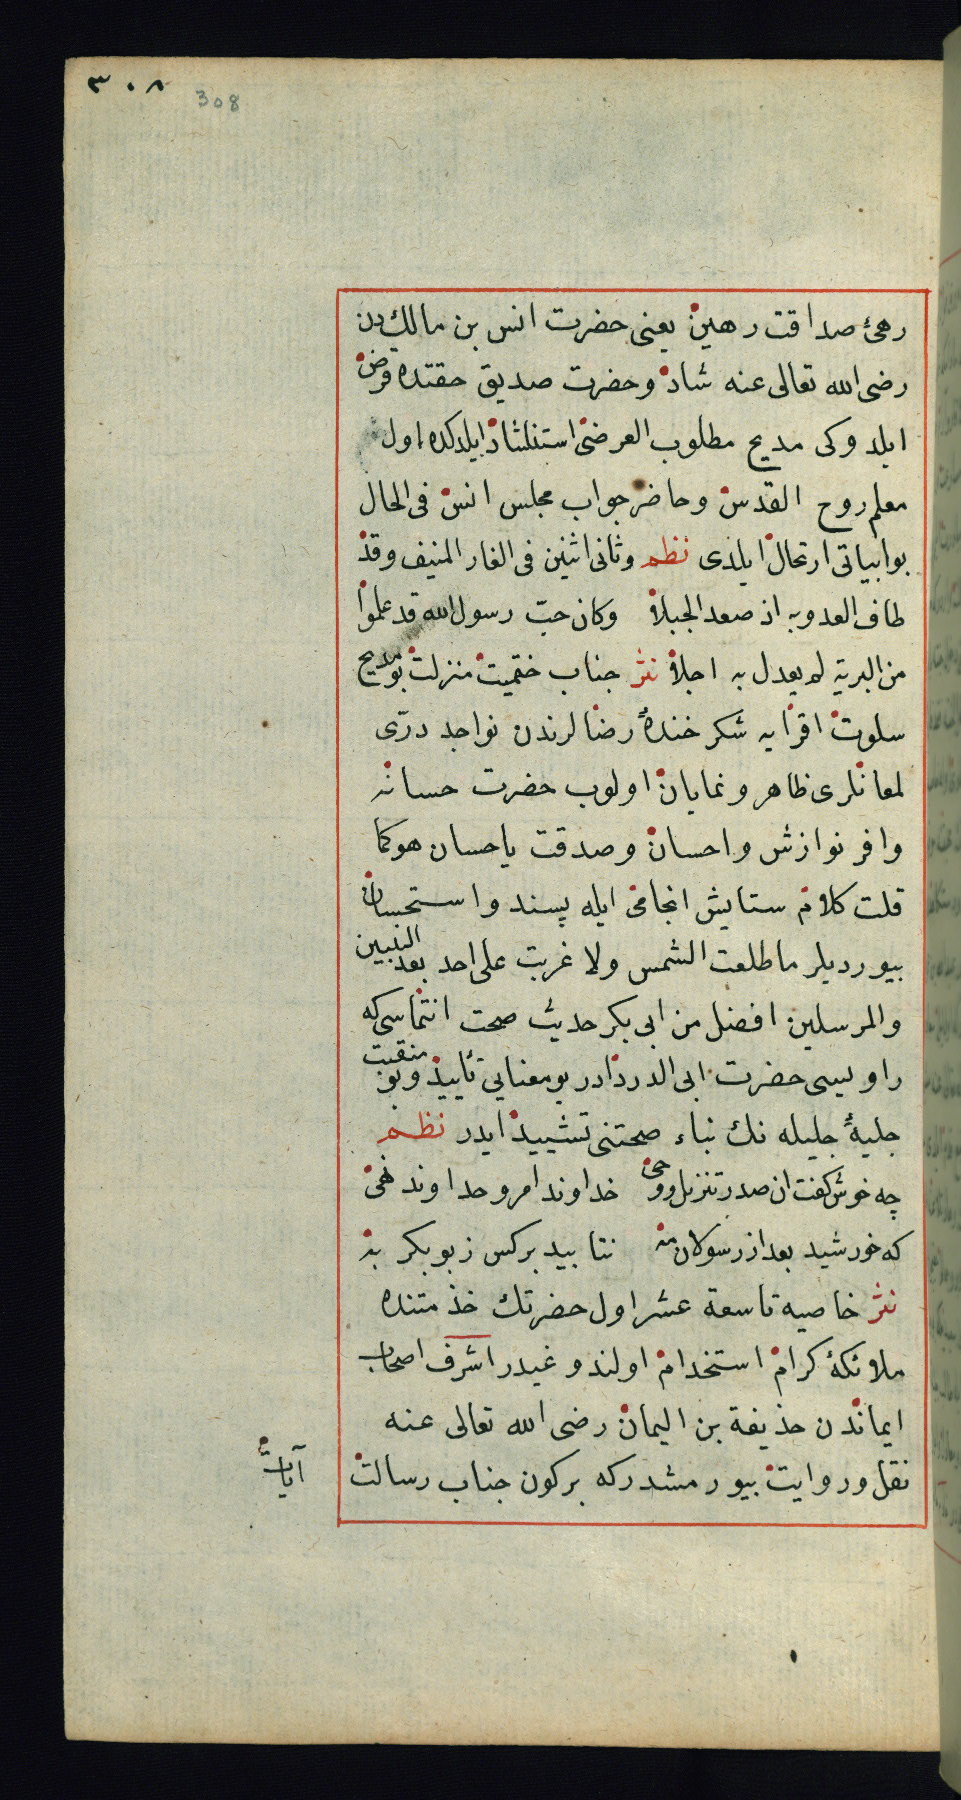 ٣٠٨
308
رهئ صداقت رهین یعنی حضرت انس بن مالك دن
رضی الله تعالی عنه شاد وحضرت صدیق حقتده قرض
ایلدوکی مدیح مطلوب العرضی استنشاد ایلدکده اول
معلم روح القدس وحاضر جواب مجلس انس فی الحال
بو ابیاتی ارتحال ایلدی نظم وثانی اثنین فی الغار المنیف وقد
طاف العدو به اذ صعد الجبلا وکان حب رسول الله قد علموا
من البریة لم یعدل به اجلا نثر جناب ختمیت منزلت بو مدیح
سلوت افزایه شکر خندهٔ رضالرندن نواجد درّی
لمعانلری ظاهر و نمایان اولوب حضرت حسانه
وافر نوازش واحسان وصدقت یاحسان هو کما
قلت کلام ستایش انجامی ایله پسند واستحسان
بیوردیلر ما طلعت الشمس ولا غربت علی احد بعد النبیین
والمرسلین افضل من ابی بکر حدیث صحت انتماسی که
راویسی حضرت ابی الدردادر بو معنایی تأیید وبو منقبت
جلیهٔ جلیله نك بناء صحتنی تشیید ایدر نظم
چه خوش کفت ان صدر تنزیل ووحی خداوند امر وخداوند نهی
که خورشید بعد از رسولان مه نتابید برکس زبوبکر به
نثر خاصیه تاسعة عشر اول حضرتك خدمتنده
ملائکهٔ کرام استخدام اولندوغیدر اشرف اصحاب
ایماندن حذیفة بن الیمان رضی الله تعالی عنه
نقل وروایت بیورمشدرکه برکون جناب رسالت
آیات